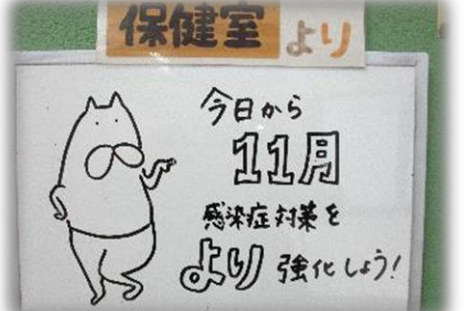 保健室より
今日から
11月
感染症対策を
より強化しよう!